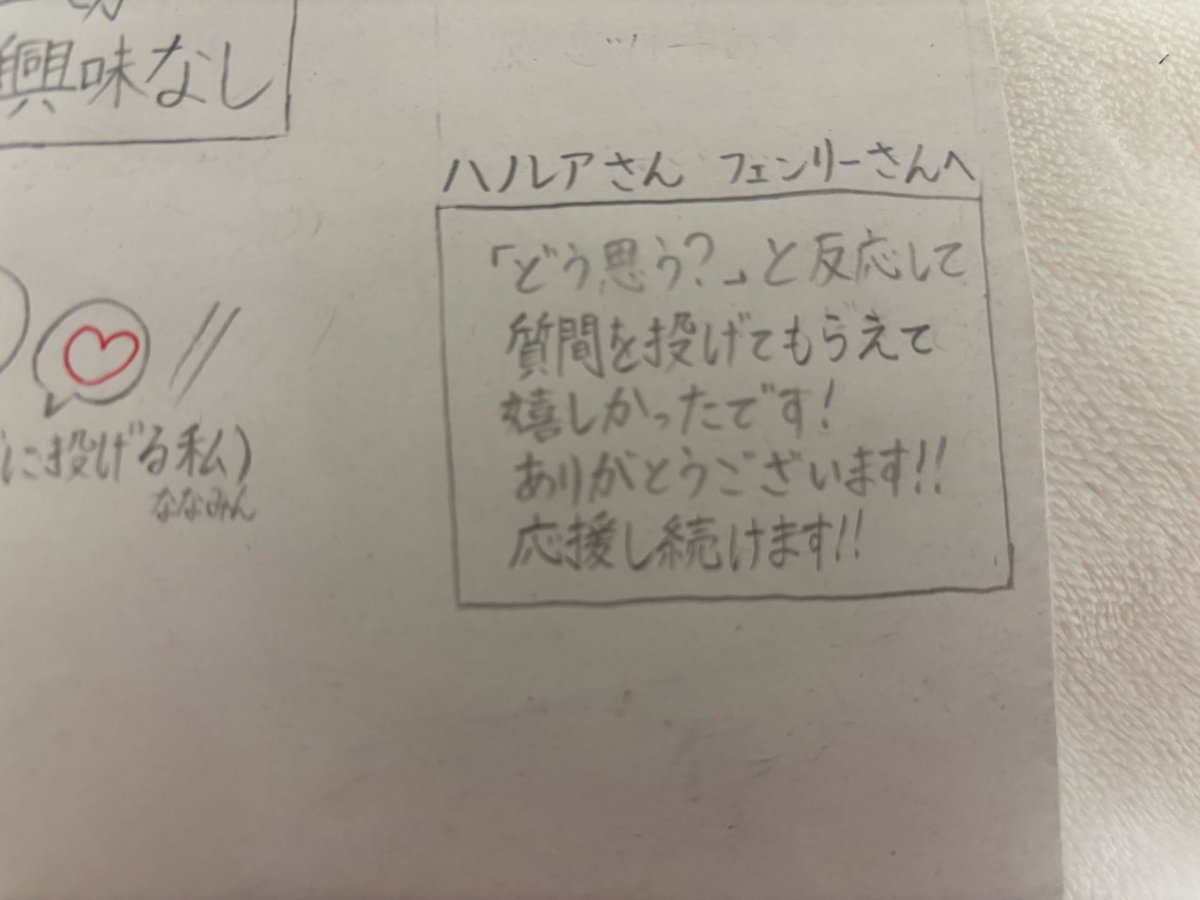 興味なし
ハルアさん フェンリーさんへ
「どう思う?」と反応して
質問を投げてもらえて
嬉しかったです!
ありがとうございます!!
応援し続けます!!
に投げる私)
ななみん